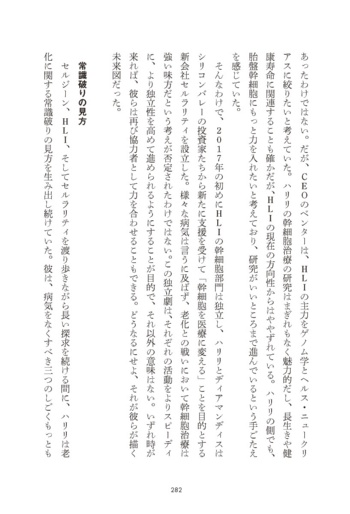 あったわけではない。だが、CEOのベンターは、HLIの主力をゲノム学とヘルス・ニュークリ
アスに絞りたいと考えていた。ハリリの幹細胞治療の研究はまぎれもなく魅力的だし、長生きや健
康寿命に関連することも確かだが、HLIの現在の方向性からはややずれている。ハリリの側でも、
胎盤幹細胞にもっと力を入れたいと考えており、研究がいいところまで進んでいるという手ごたえ
を感じていた。
そんなわけで、2017年の初めにHLIの幹細胞部門は独立し、ハリリとディアマンディスは
シリコンバレーの投資家たちから新たに支援を受けて「幹細胞を医療に変える」ことを目的とする
新会社セルラリティを設立した。様々な病気は言うに及ばず、老化との戦いにおいて幹細胞治療は
強い味方だという考えが否定されたわけではない。この独立劇は、それぞれの活動をよりスピーディ
に、より独立性を高めて進められるようにすることが目的で、それ以外の意味はない。いずれ時が
来れば、彼らは再び協力者として力を合わせることもできる。どうなるにせよ、それが彼らが描く
未来図だった。
常識破りの見方
セルジーン、HLI、そしてセルラリティを渡り歩きながら長い探求を続ける間に、ハリリは老
化に関する常識破りの見方を生み出し続けていた。彼は、病気をなくすべき三つのしごくもっとも
282